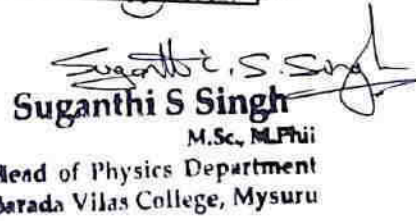 Suganthi. S. Singh
Suganthi S Singh
M.Sc., M.Phil
Head of Physics Department
Sarada Vilas College, Mysuru